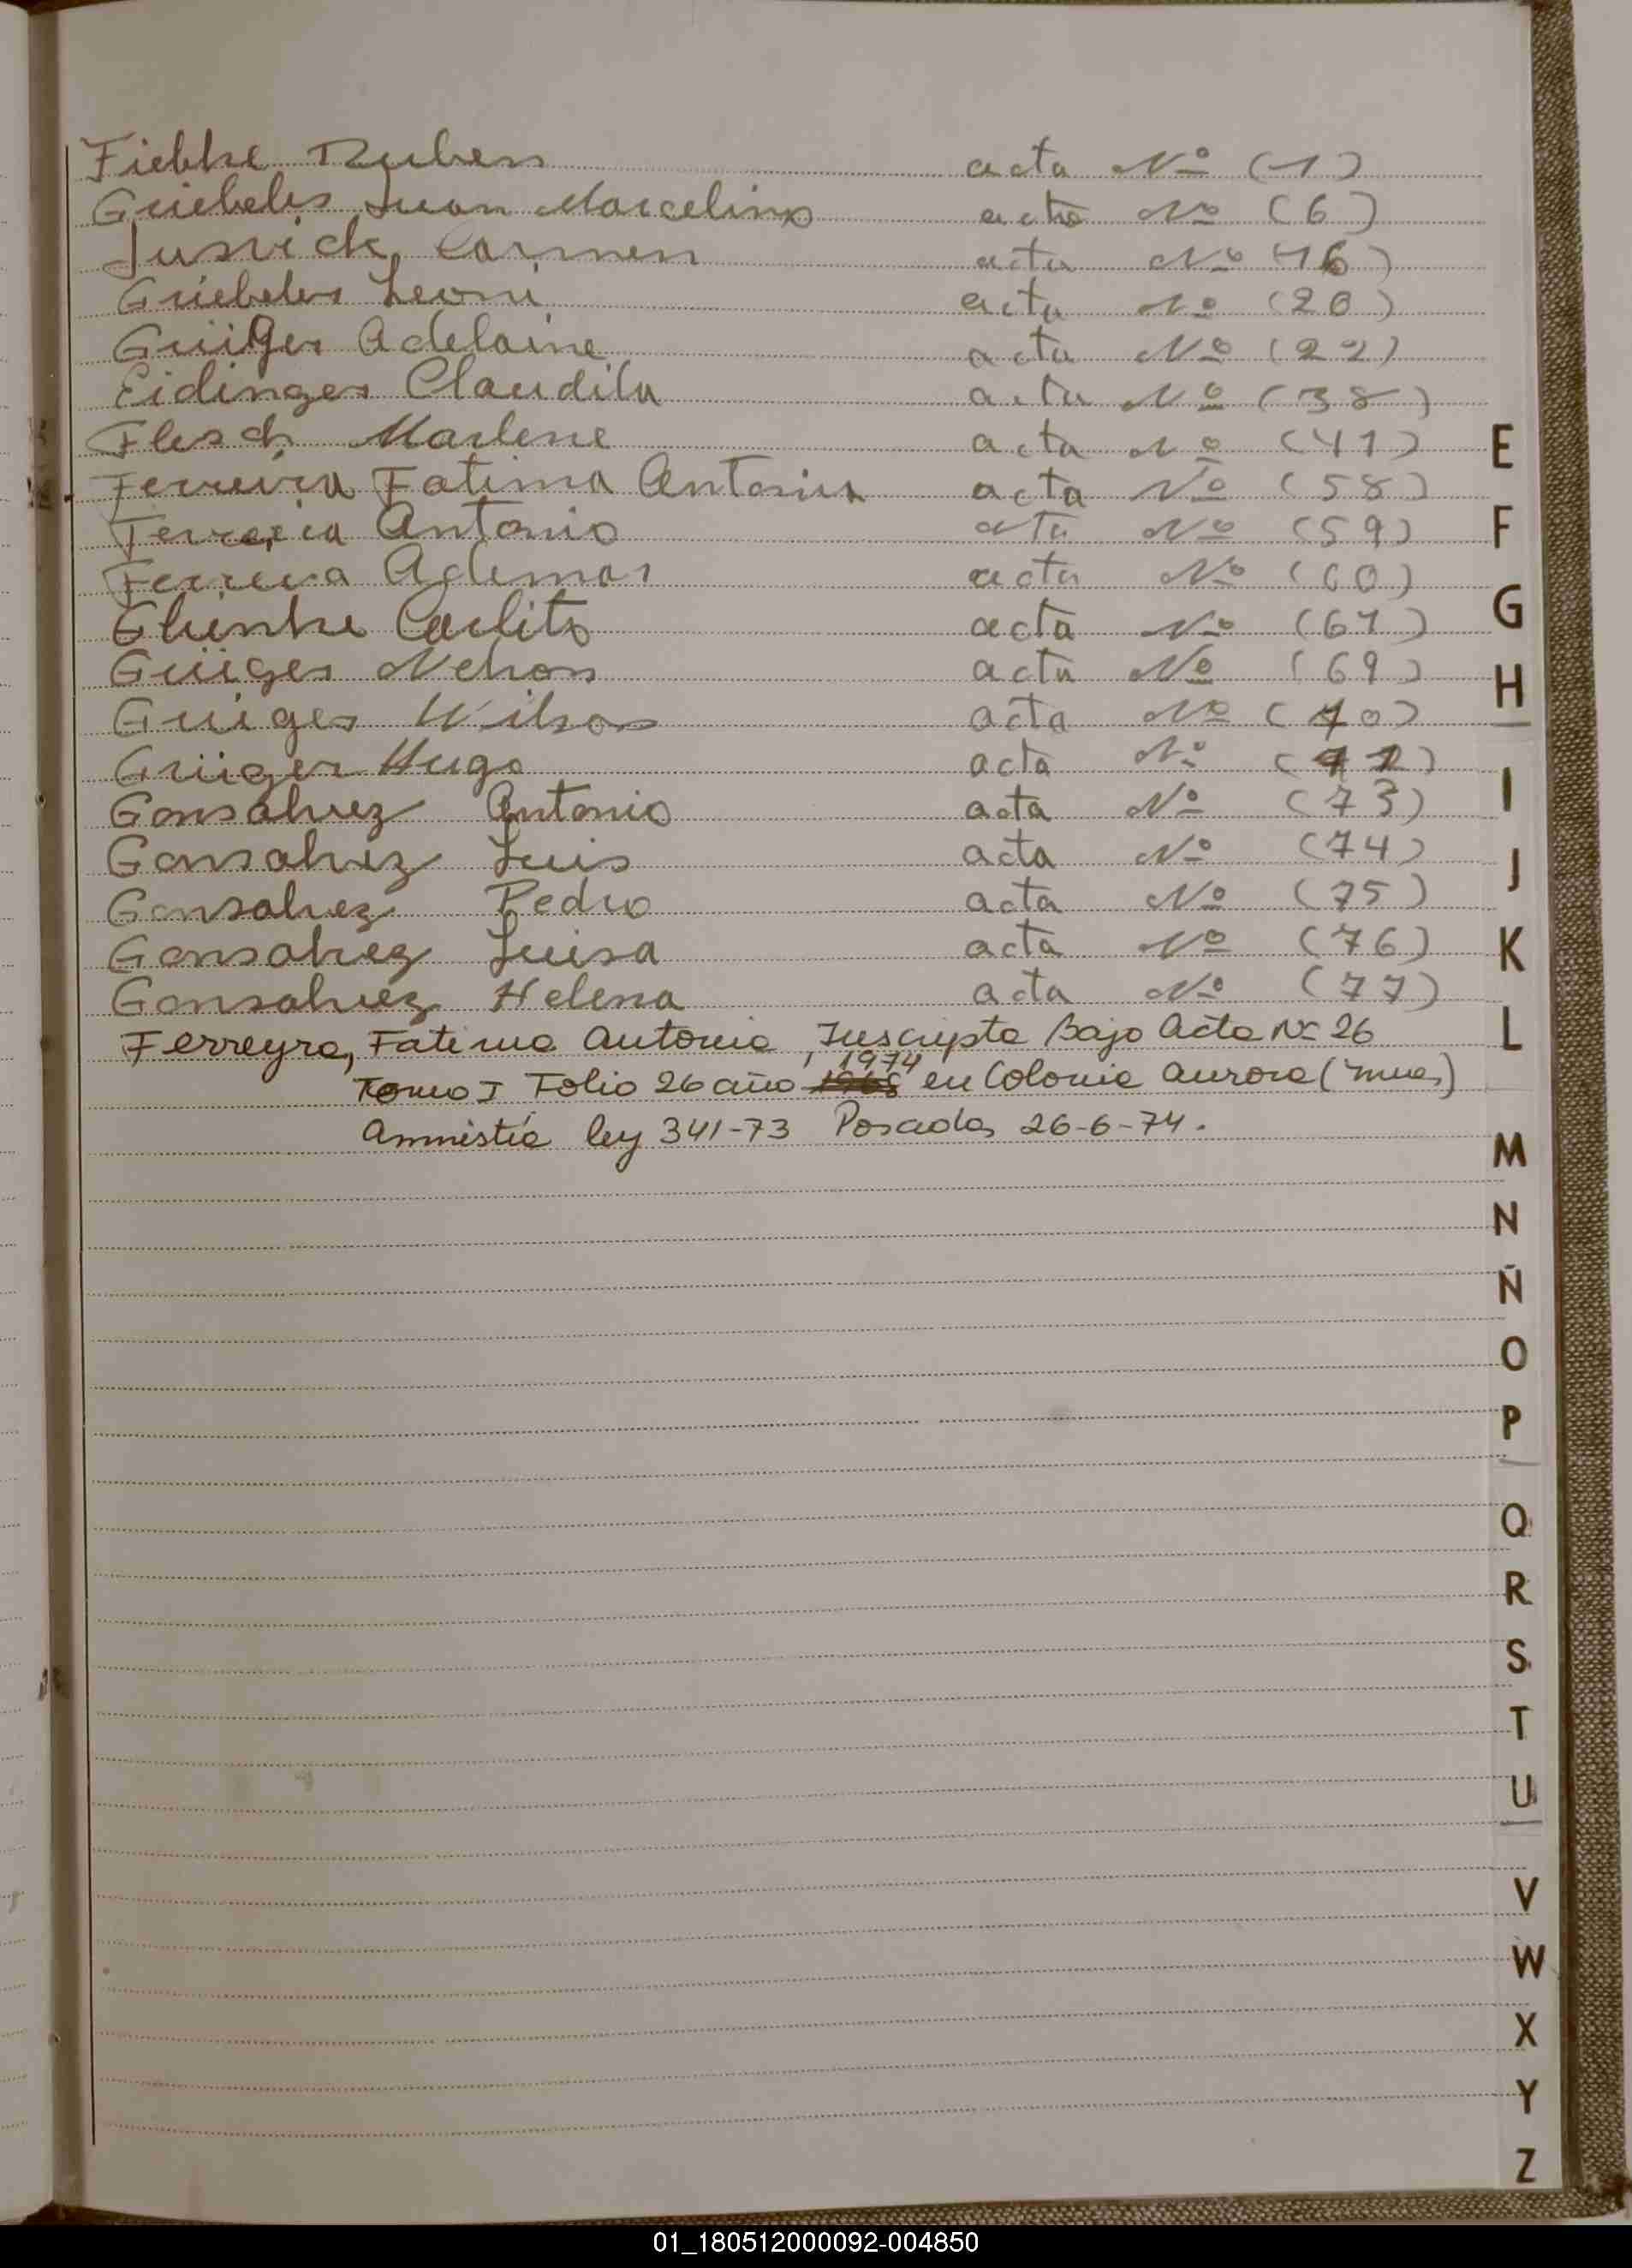 Fiebke Ruben acta Nº (1)
Griebeler Juan Marcelino acta Nº (6)
Jusvick Carmen acta Nº 16)
Griebeler Leoni acta Nº (20)
Grüiger Adelaine acta Nº (22)
Eidinger Claudila acta Nº (38)
Flesch Marlene acta Nº (41)
Ferreira Fatima Antonia acta Nº (58)
Ferreira Antonio acta Nº (59)
Ferreira Ademar acta Nº (60)
Glienke Carlito acta Nº (67)
Grüiger Nelson acta Nº (69)
Grüiger Wilson acta Nº (70)
Grüiger Hugo acta Nº (72)
Gonsalvez Antonio acta Nº (73)
Gonsalvez Luis acta Nº (74)
Gonsalvez Pedro acta Nº (75)
Gonsalvez Luisa acta Nº (76)
Gonsalvez Helena acta Nº (77)
Ferreyra, Fatima Antonia, Inscripta Bajo Acta Nº 26
Tomo I Folio 26 año 1974 en Colonia Aurora (Mnes)
Amnistía ley 341-73 Posadas 26-6-74.
E
F
G
H
I
J
K
L
M
N
Ñ
O
P
Q
R
S
T
U
V
W
X
Y
Z
01_180512000092-004850